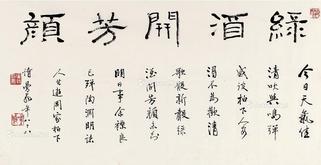 綠酒開芳顏
今日天氣佳
清吹與鳴彈
感彼柏下人安
得不為歡清
歌散新聲綠
酒開芳顏未知
明日事余襟良
已殫陶淵明諸
人共遊周家柏下